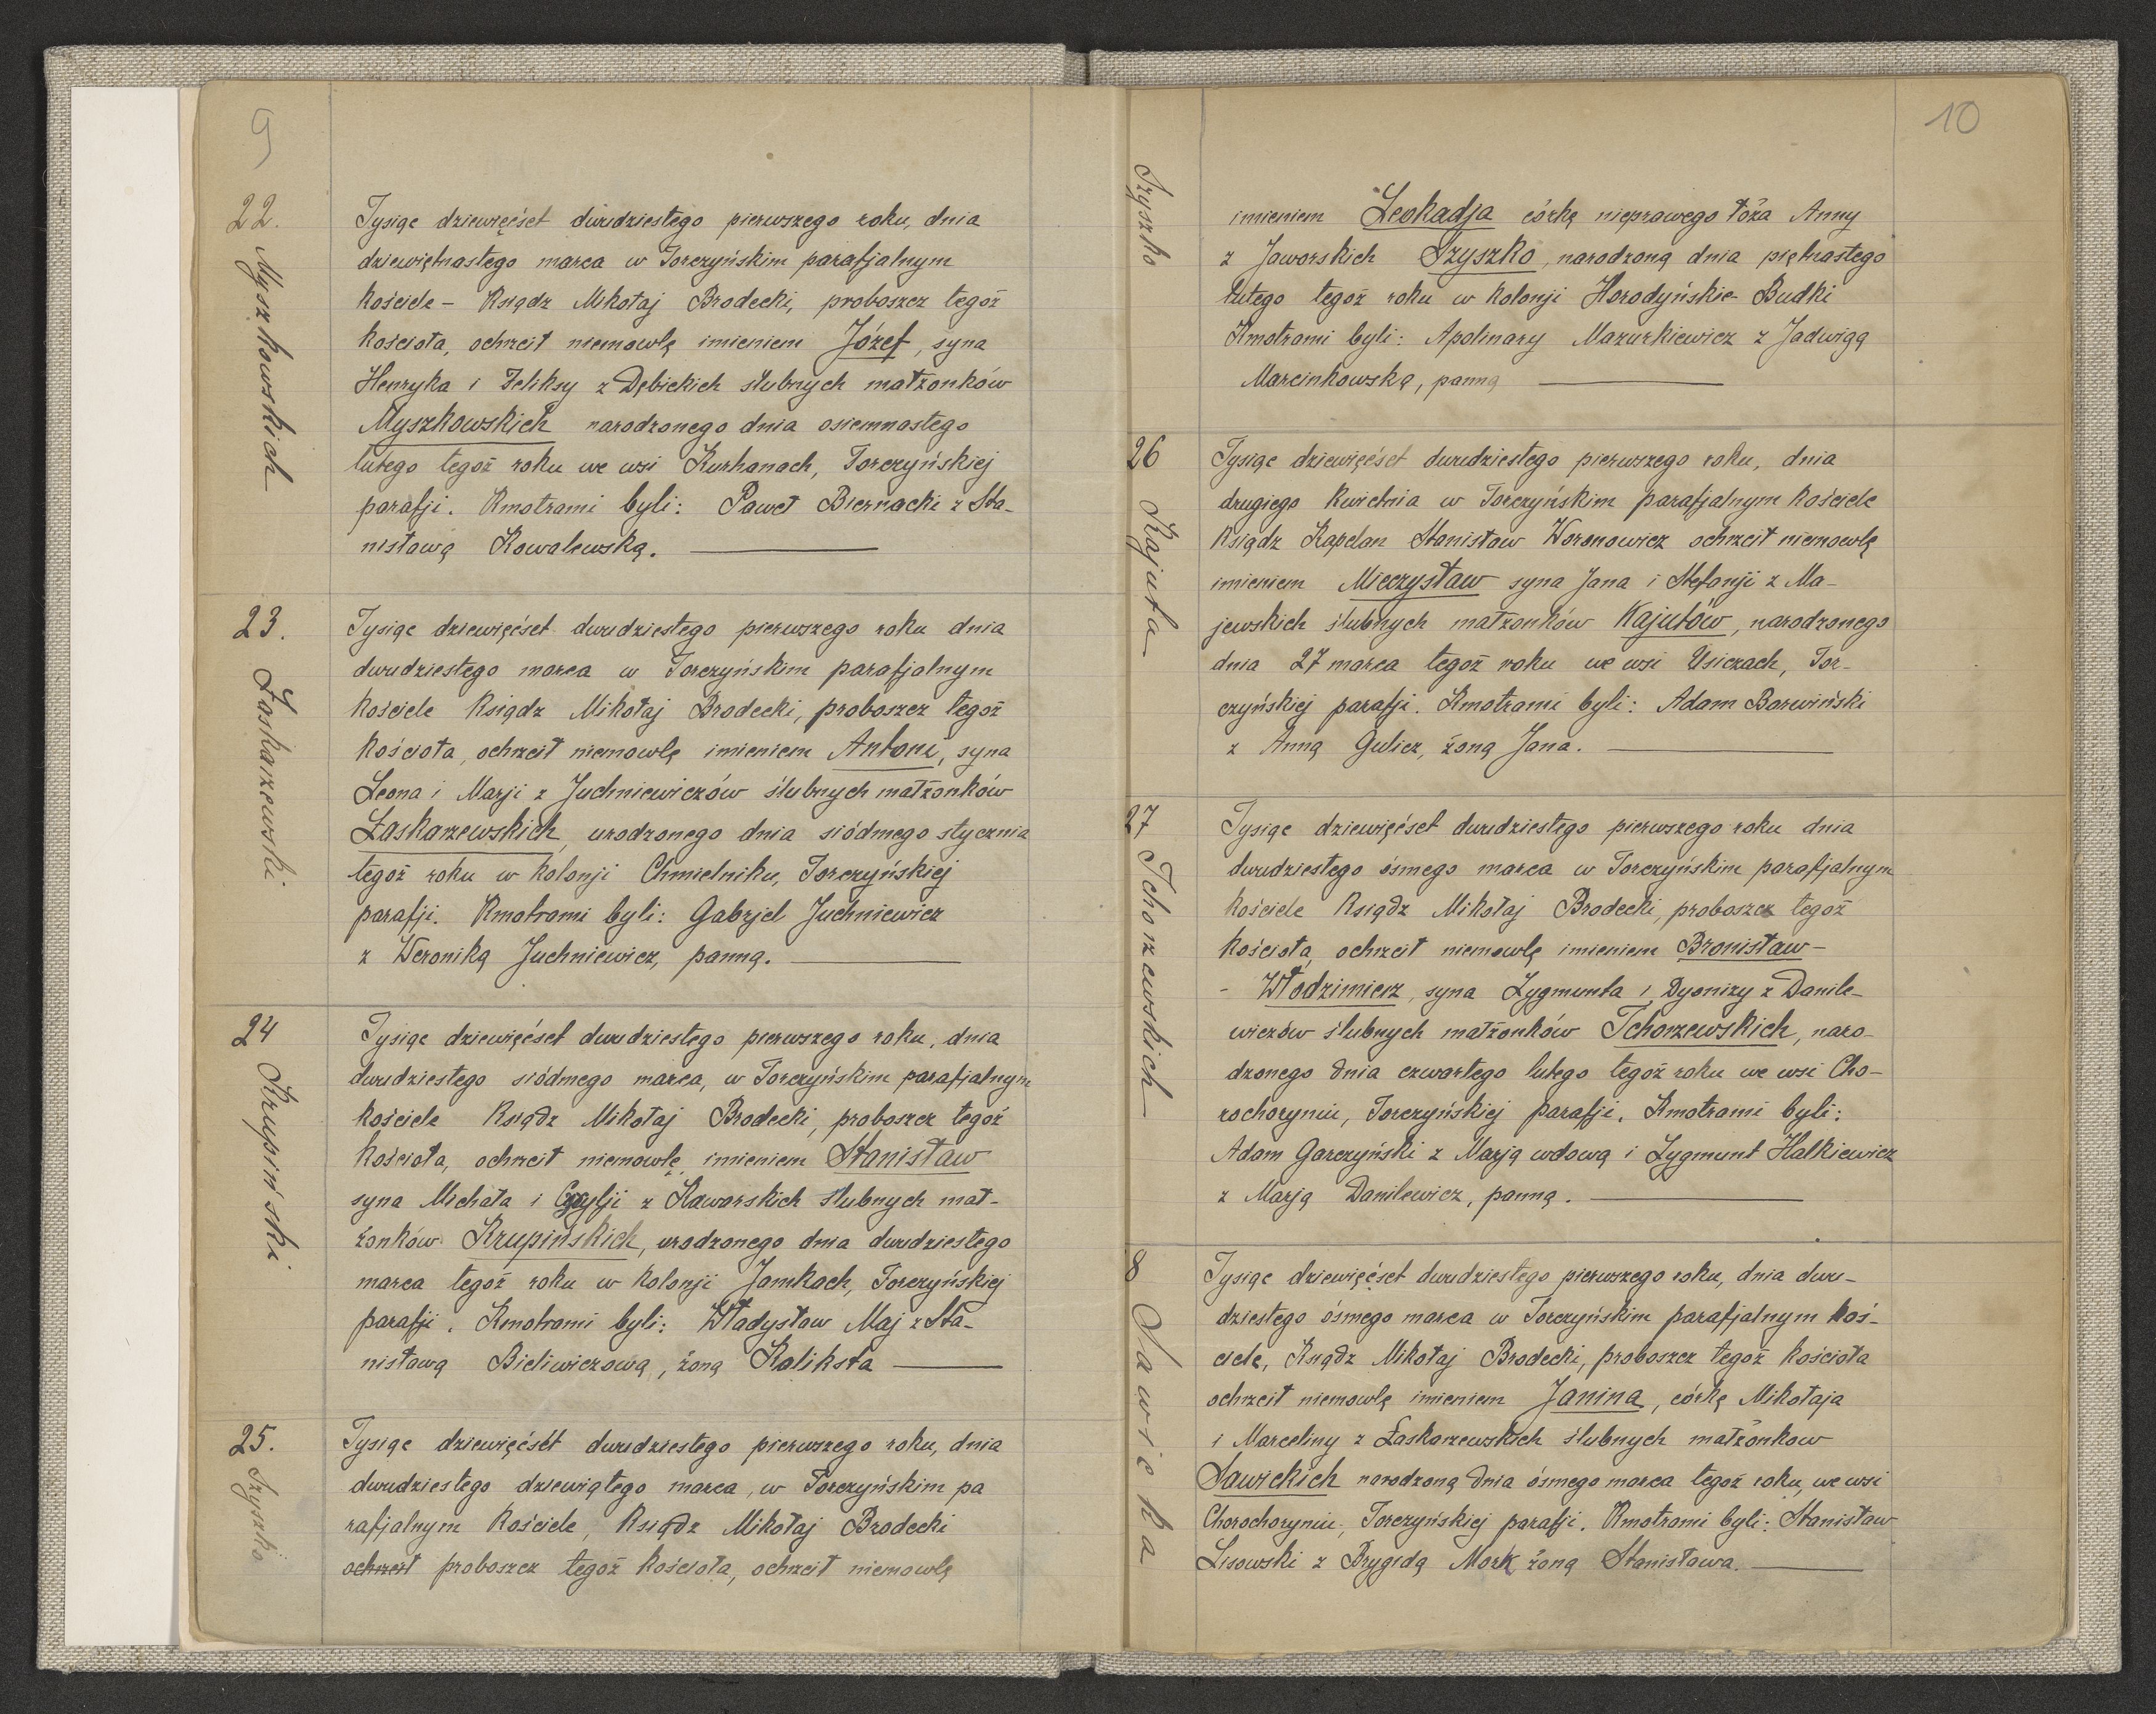 9
22.
Myszkowskich
Tysiąc dziewięćset dwudziestego pierwszego roku, dnia
dziewiętnastego marca w Torczyńskim parafjalnym
kościele – Ksiądz Mikołaj Brodecki, proboszcz tegoż
kościoła, ochrzcił niemowlę imieniem Józef, syna
Henryka i Feliksy z Dębickich ślubnych małżonków
Myszkowskich narodzonego dnia osiemnastego
lutego tegoż roku we wsi Kurhanach, Torczyńskiej
parafji. Kmotrami byli: Paweł Biernacki z Sta-
nisławą Kowalewską.
23.
Łaskarzewski.
Tysiąc dziewięćset dwudziestego pierwszego roku dnia
dwudziestego marca w Torczyńskim parafjalnym
kościele Ksiądz Mikołaj Brodecki, proboszcz tegoż
kościoła, ochrzcił niemowlę imieniem Antoni, syna
Leona i Marji z Juchniewiczów ślubnych małżonków
Łaskarzewskich, urodzonego dnia siódmego stycznia
tegoż roku w kolonji Chmielniku, Torczyńskiej
parafji. Kmotrami byli: Gabrjel Juchniewicz
z Weroniką Juchniewicz, panną.
24
Krupiński
Tysiąc dziewięćset dwudziestego pierwszego roku, dnia
dwudziestego siódmego marca, w Torczyńskim parafjalnym
kościele Ksiądz Mikołaj Brodecki, proboszcz tegoż
kościoła, ochrzcił niemowlę imieniem Stanisław
syna Michała i z Kaworskich ślubnych mał-
żonków Krupińskich, urodzonego dnia dwudziestego
marca tegoż roku w kolonji Jamkach, Torczyńskiej
parafji. Kmotrami byli: Władysław Maj z Sta-
nisławą Bieliwiczową, żoną Kaliksta
25.
Szyszko
Tysiąc dziewięćset dwudziestego pierwszego roku, dnia
dwudziestego dziewiątego marca, w Torczyńskim pa
rafjalnym Kościele, Ksiądz Mikołaj Brodecki
ochrzcił proboszcz tegoż kościoła, ochrzcił niemowlę
10
Szyszko
imieniem Leokadja córkę nieprawego łoża Anny
z Jaworskich Szyszko, narodzoną dnia piętnastego
lutego tegoż roku w kolonji Horodyńskie Budki
Kmotrami byli: Apolinary Mazurkiewicz z Jadwigą
Marcinkowską, panną
26
Kajuta
Tysiąc dziewięćset dwudziestego pierwszego roku, dnia
drugiego kwietnia w Torczyńskim parafjalnym kościele
Ksiądz Kapelan Stanisław Woronowicz ochrzcił niemowlę
imieniem Mieczysław syna Jana i Stefanji z Ma-
jewskich ślubnych małżonków Kajutów, narodzonego
dnia 27 marca tegoż roku we wsi Usiczach, Tor-
czyńskiej parafji. Kmotrami byli: Adam Barwiński
z Anną Gulicz, żoną Jana.
27
Tchorzewskich
Tysiąc dziewięćset dwudziestego pierwszego roku dnia
dwudziestego ósmego marca w Torczyńskim parafjalnym
kościele Ksiądz Mikołaj Brodecki, proboszcz tegoż
kościoła, ochrzcił niemowlę imieniem Bronisław-
- Włodzimierz, syna Zygmunta i Dyonizy z Danile-
wiczów ślubnych małżonków Tchorzewskich, naro-
dzonego dnia czwartego lutego tegoż roku we wsi Cho-
rochoryniu, Torczyńskiej parafji. Kmotrami byli:
Adam Garczyński z Marją wdową i Zygmunt Halkiewicz
z Marją Danilewicz, panną.
8
Sawicka
Tysiąc dziewięćset dwudziestego pierwszego roku, dnia dwu-
dziestego ósmego marca w Torczyńskim parafjalnym koś-
ciele, Ksiądz Mikołaj Brodecki, proboszcz tegoż kościoła
ochrzcił niemowlę imieniem Janina, córkę Mikołaja
i Marceliny z Łaskarzewskich ślubnych małżonkow
Sawickich narodzoną dnia ósmego marca tegoż roku, we wsi
Chorochoryniu, Torczyńskiej parafji. Kmotrami byli: Stanisław
Lisowski z Brygidą Mork żoną Stanisława.